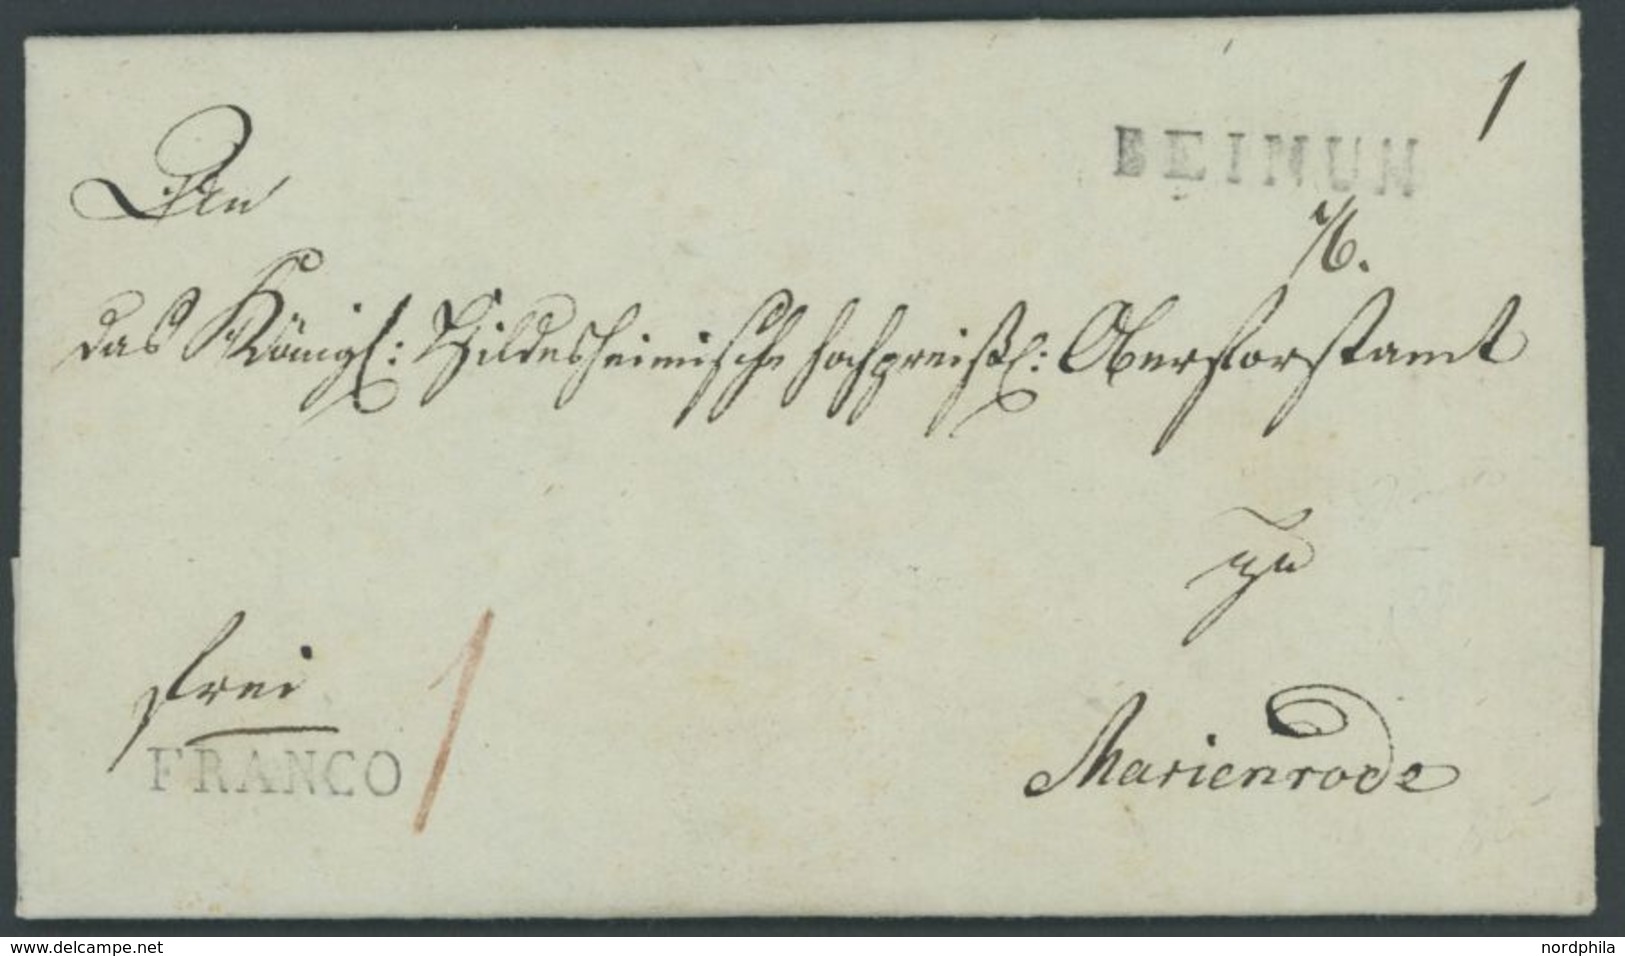 1
BEINUM
An
das Königl: Hildesheimische hochpreißl: Oberforstamt
zu
frei
1
FRANCO
Marienrode
www.delcampe.net
nordphila